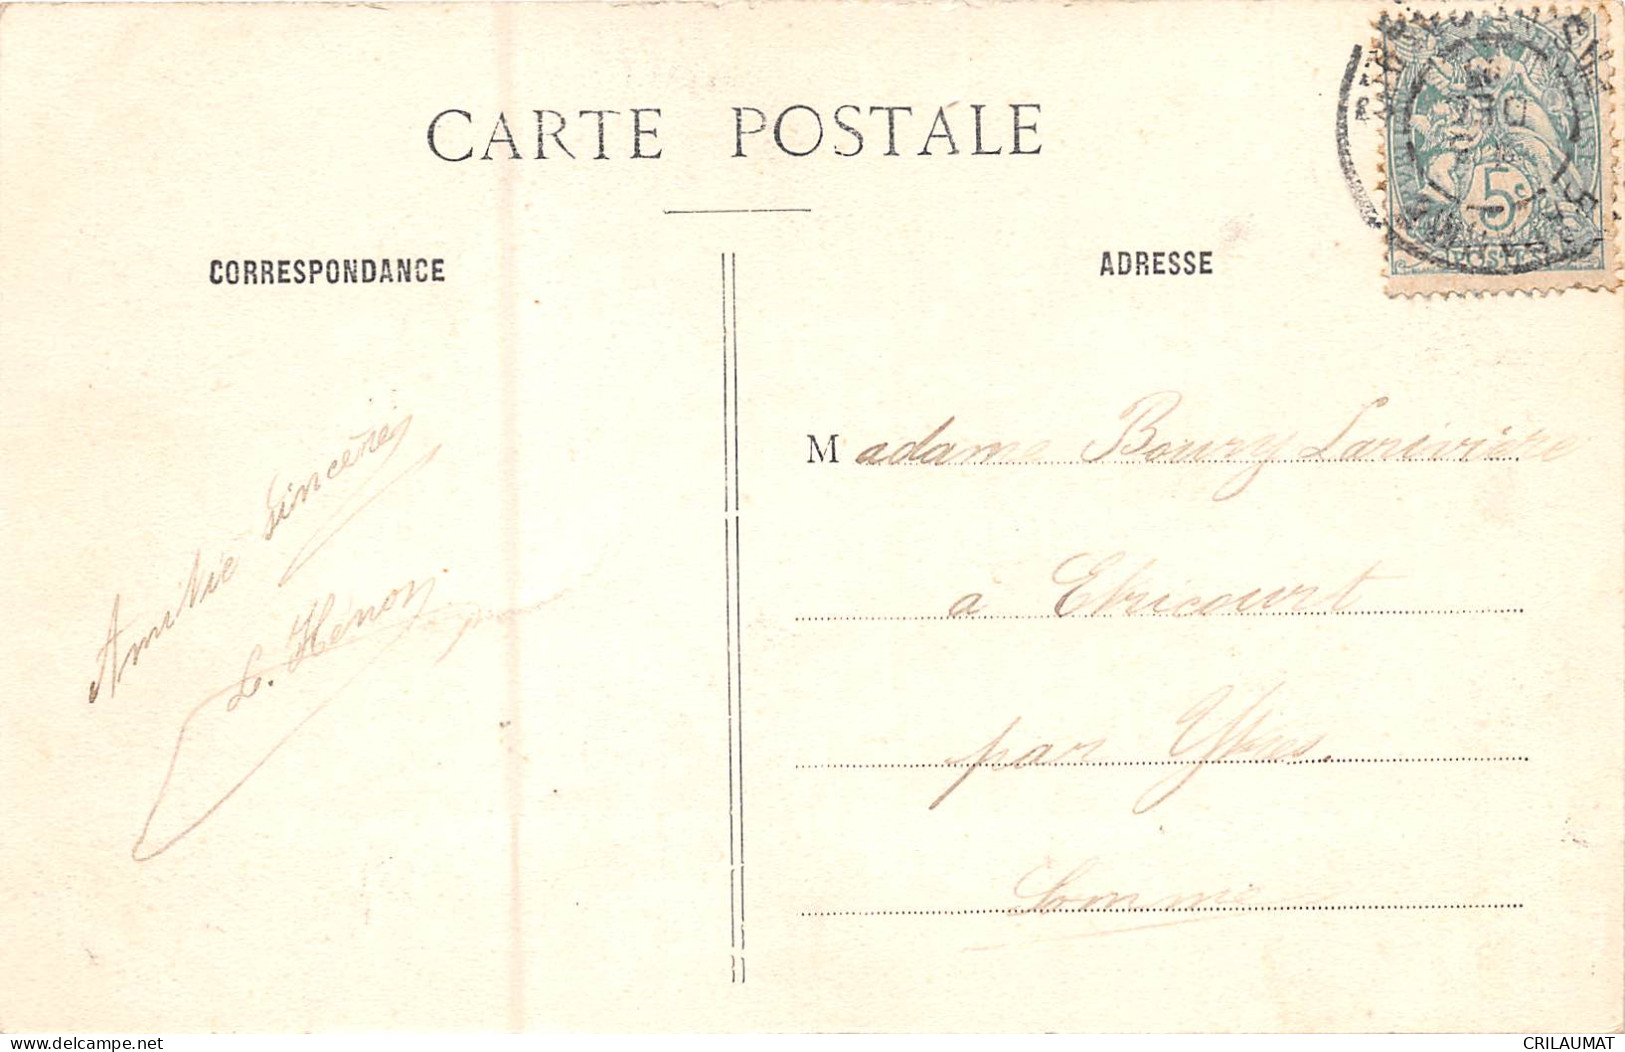 CARTE POSTALE
CORRESPONDANCE
ADRESSE
5c
POSTES
Amitié Sincères
L. Hénon
Madame Boury Larivière
à Etricourt
par Ytres
Somme
www.delcampe.net
CRILAUMAT